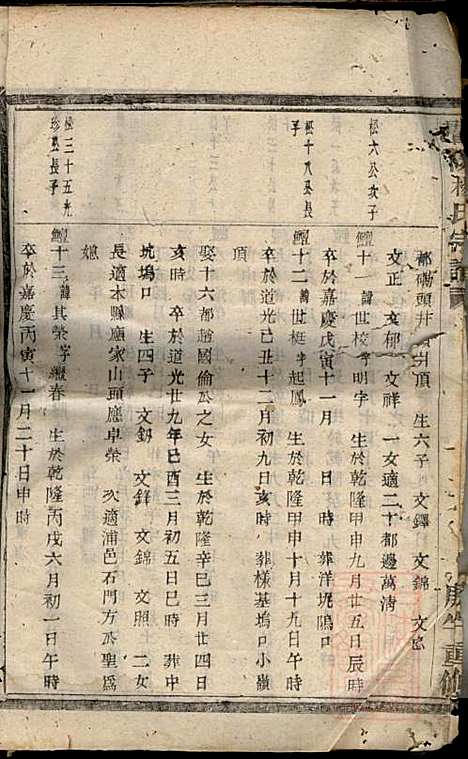 松六公次子
都碼頭井 井頂 生六子 文鐸 文錦 文
文正 文郁 文祥 一女適二十都邊萬清
鱣十一 諱世校字明字 生於乾隆甲申九月廿五日辰時
卒於嘉慶戊寅十一月 日 時 葬洋坑隝口
松十八公長子
鱣十二 諱世梃字起鳳 生於乾隆甲申十月十九日午時
卒於道光己丑十二月初九日亥時 葬樣基塢口小嶺
頂
娶十六都趙國倫公之女 生於乾隆辛巳三月廿四日
亥時 卒於道光廿九年己酉三月初五日巳時 葬中
坑塢口 生四子 文釼 文鋒 文錦 文照 二女
長適本縣應家山頭應卓榮 次適浦邑石門方公聖為
媳
松三十五光珍公長子
鱣十三 諱其榮字繼春 生於乾隆丙戌六月初一日午時
卒於嘉慶丙寅十一月二十日申時
氏宗譜
重修